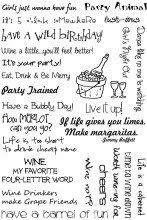 Girls just wanna have fun
Party Animal
it's 5 o'clock
have a wild birthday!
Wine a little, you'll feel better!
It's your party!
Eat, Drink & Be Merry
Party Trained
Have a Bubbly Day!
Live it up!
How MERLOT
can you go?
If life gives you limes.
Make margaritas.
Jimmy Buffett
Life is too short
to drink cheap
WINE
MY FAVORITE
FOUR-LETTER WORD
Wine Drinkers
make Grape Friends
have a barrel of fun
Girl's Night Out
Drink
to me
cheers
Life is a cabernet